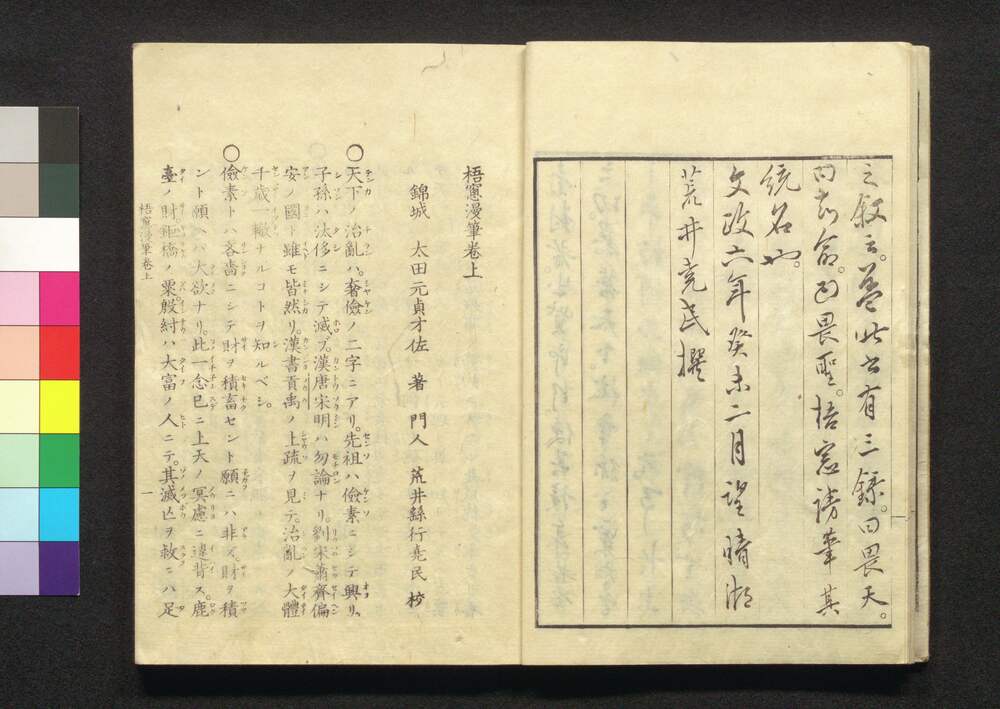 之敘云。蓋此書有三錄。曰畏天。
曰知命。曰畏聖。梧窓漫筆其
統名也。
文政六年癸未二月望晴湖
荒井堯民撰
梧窻漫筆卷上
錦城 太田元貞才佐 著 門人 荒井繇行堯民 挍
○天下ノ治亂ハ。奢儉ノ二字ニアリ。先祖ハ儉素ニシテ興リ。
子孫ハ汰侈ニシテ滅ブ。漢唐宋明ハ勿論ナリ。劉宋蕭齊偏
安ノ國ト雖モ皆然リ。漢書貢禹ノ上疏ヲ見テ。治亂ノ大體
千歲一轍ナルコトヲ知ルベシ。
○儉素トハ吝嗇ニシテ財ヲ積畜セント願ニハ非ズ。財ヲ積
ント願ヘバ大欲ナリ。此一念巳ニ上天ノ冥慮ニ違背ス。鹿
臺ノ財鉅橋ノ粟。殷紂ハ大富ノ人ニテ。其滅亡ヲ救ニハ足
梧窻漫筆卷上
一